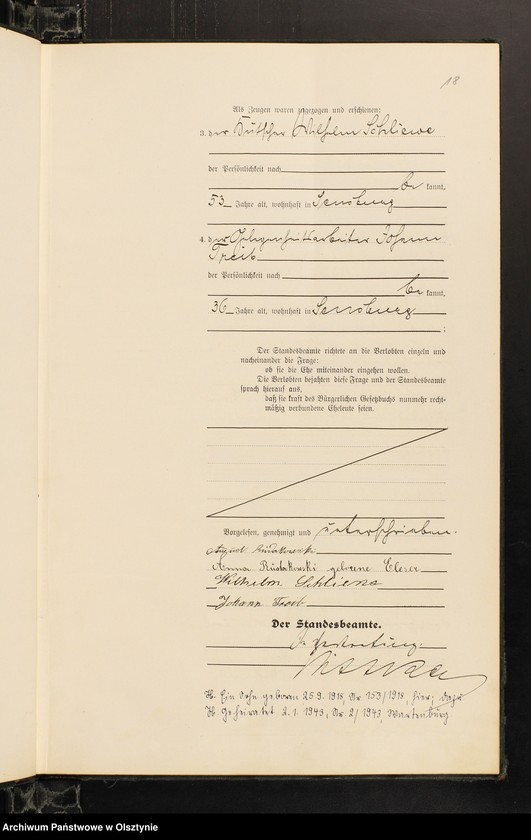 18
Als Zeugen waren zugezogen und erschienen:
3. der Kutscher Wilhelm Schliewe
der Persönlichkeit nach
be kannt,
53 Jahre alt, wohnhaft in Sensburg
4. der Gelegenheitsarbeiter Johann
Treib
der Persönlichkeit nach
be kannt,
36 Jahre alt, wohnhaft in Sensburg
;
Der Standesbeamte richtete an die Verlobten einzeln und
nacheinander die Frage:
ob sie die Ehe miteinander eingehen wollen.
Die Verlobten bejahten diese Frage und der Standesbeamte
sprach hierauf aus,
daß sie kraft des Bürgerlichen Gesetzbuchs nunmehr recht-
mäßig verbundene Eheleute seien.
Vorgelesen, genehmigt und unterschrieben.
August Rudakowski
Anna Rudakowski geborene
Wilhelm Schliewe
Johann Treib
Der Standesbeamte.
In Vertretung.
H. Ein Sohn geboren 25.9.1918, Nr. 153/1918, hier;
H. Geheiratet 2.1.1943, Nr. 2/1943, Wartenburg
Archiwum Państwowe w Olsztynie